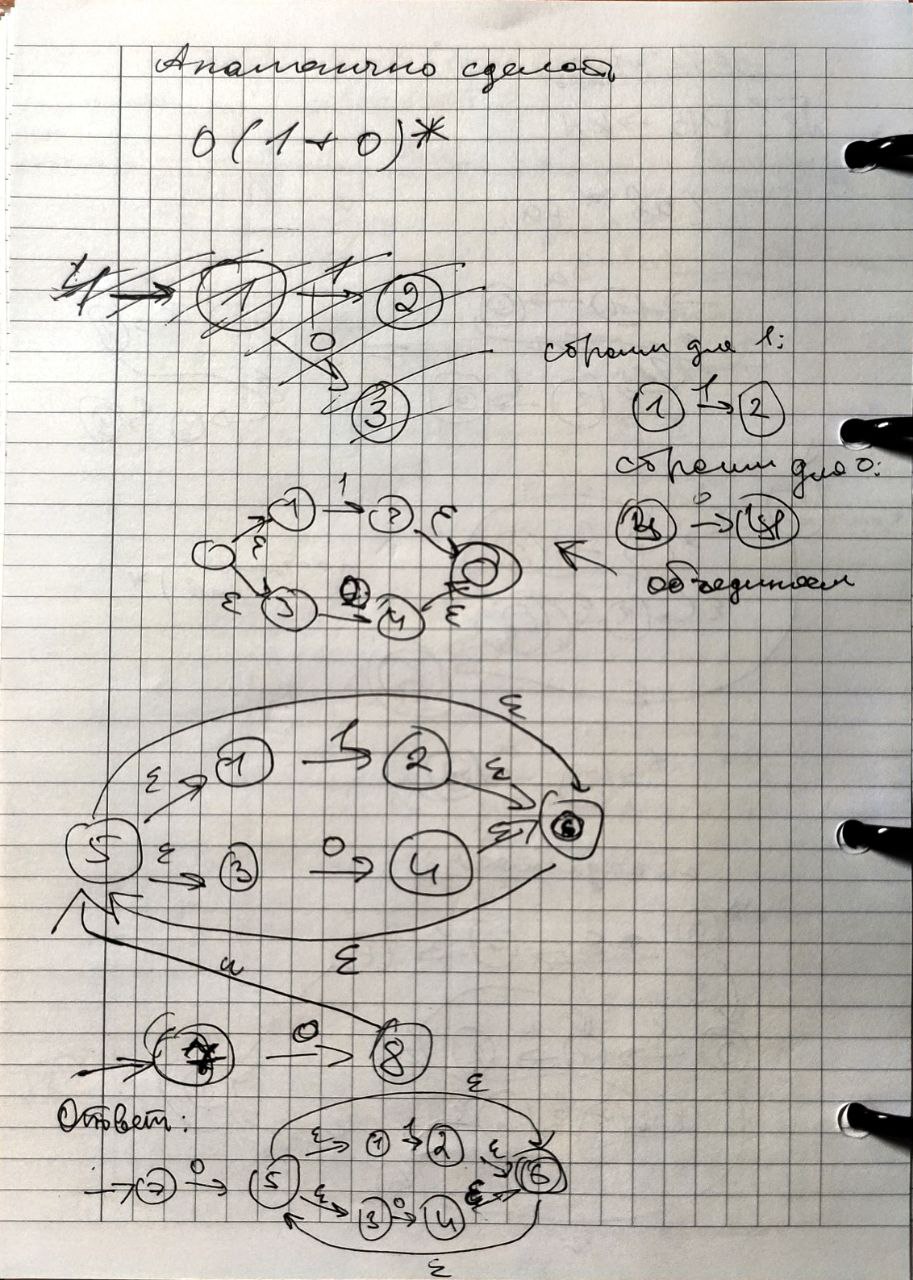 Аналогично сделать
0(1+0)*
1 1 2
0
3
строим для 1:
1 1 2
строим для 0:
3 0 4
объединяем
1 1 2 ε
ε
ε 3 0 4 ε
ε
ε 1 1 2 ε
5 ε 3 0 4 ε 6
ε
7 0 8
Ответ:
ε
ε 1 1 2 ε
7 0 5 6
ε 3 0 4 ε
ε